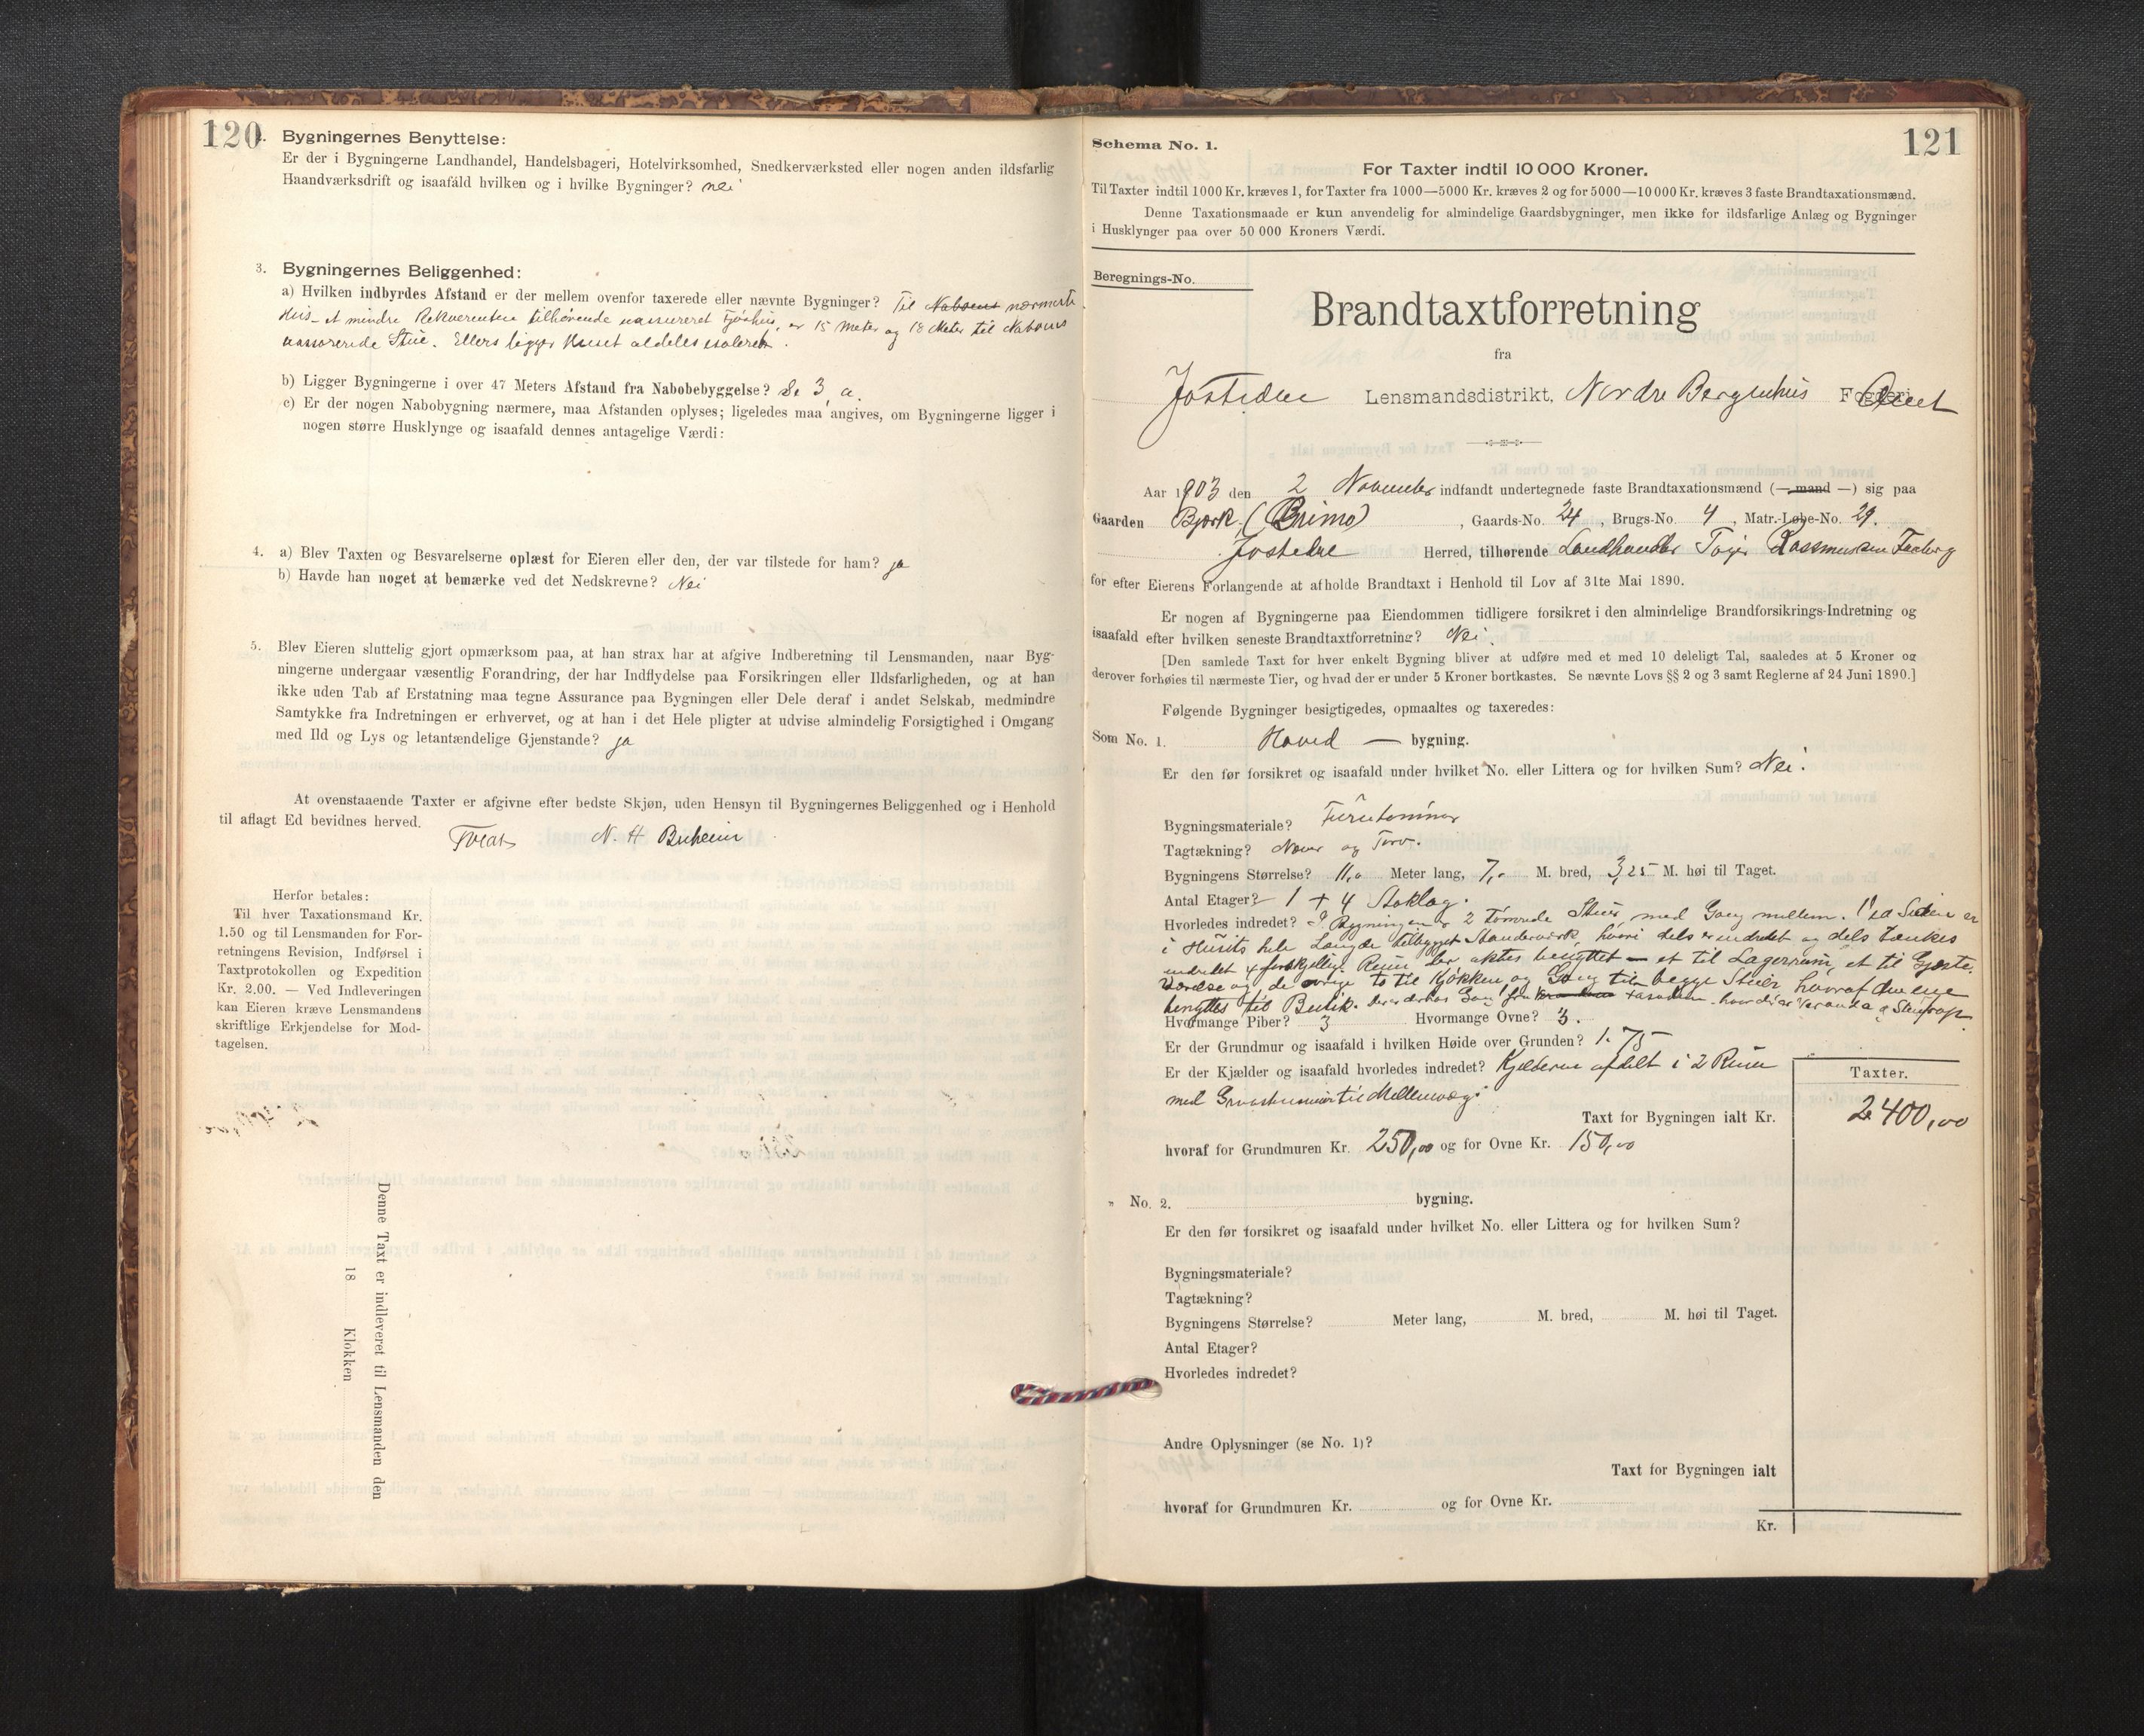 120
2. Bygningernes Benyttelse:
Er der i Bygningerne Landhandel, Handelsbageri, Hotelvirksomhed, Snedkerværksted eller nogen anden ildsfarlig
Haandværksdrift og isaafald hvilken og i hvilke Bygninger? nei
3. Bygningernes Beliggenhed:
a) Hvilken indbyrdes Afstand er der mellem ovenfor taxerede eller nævnte Bygninger? Til Naboens nærmeste
Hus - et mindre Rekvirenten tilhørende uassureret Fjøshus, er 15 Meter og 18 Meter til Naboens
uassurerede Stue. Ellers ligger Huset aldeles isoleret.
b) Ligger Bygningerne i over 47 Meters Afstand fra Nabobebyggelse? Se 3, a.
c) Er der nogen Nabobygning nærmere, maa Afstanden oplyses; ligeledes maa angives, om Bygningerne ligger i
nogen større Husklynge og isaafald dennes antagelige Værdi:
4. a) Blev Taxten og Besvarelserne oplæst for Eieren eller den, der var tilstede for ham? ja
b) Havde han noget at bemærke ved det Nedskrevne? Nei
5. Blev Eieren sluttelig gjort opmærksom paa, at han strax har at afgive Indberetning til Lensmanden, naar Byg-
ningerne undergaar væsentlig Forandring, der har Indflydelse paa Forsikringen eller Ildsfarligheden, og at han
ikke uden Tab af Erstatning maa tegne Assurance paa Bygningen eller Dele deraf i andet Selskab, medmindre
Samtykke fra Indretningen er erhvervet, og at han i det Hele pligter at udvise almindelig Forsigtighed i Omgang
med Ild og Lys og letantændelige Gjenstande? ja
At ovenstaaende Taxter er afgivne efter bedste Skjøn, uden Hensyn til Bygningernes Beliggenhed og i Henhold
til aflagt Ed bevidnes herved.
N. H.
Herfor betales:
Til hver Taxationsmand Kr.
1.50 og til Lensmanden for For-
retningens Revision, Indførsel i
Taxtprotokollen og Expedition
Kr. 2.00. — Ved Indleveringen
kan Eieren kræve Lensmandens
skriftlige Erkjendelse for Mod-
tagelsen.
Denne Taxt er indleveret til Lensmanden den
18 Klokken
121
Schema No. 1.
For Taxter indtil 10 000 Kroner.
Til Taxter indtil 1000 Kr. kræves 1, for Taxter fra 1000—5000 Kr. kræves 2 og for 5000—10 000 Kr. kræves 3 faste Brandtaxationsmænd.
Denne Taxationsmaade er kun anvendelig for almindelige Gaardsbygninger, men ikke for ildsfarlige Anlæg og Bygninger
i Husklynger paa over 50 000 Kroners Værdi.
Beregnings-No.
Brandtaxtforretning
fra
Jostedalen Lensmandsdistrikt, Nordre Bergenhus Fogderi Amt
Aar 1903 den 2 November indfandt undertegnede faste Brandtaxationsmænd (— mand —) sig paa
Gaarden Bjørk (Brimo), Gaards-No. 24, Brugs-No. 4, Matr.-Løbe-No. 29.
Jostedal Herred, tilhørende Landhandler Rasmussen
for efter Eierens Forlangende at afholde Brandtaxt i Henhold til Lov af 31te Mai 1890.
Er nogen af Bygningerne paa Eiendommen tidligere forsikret i den almindelige Brandforsikrings-Indretning og
isaafald efter hvilken seneste Brandtaxtforretning? Nei.
[Den samlede Taxt for hver enkelt Bygning bliver at udføre med et med 10 deleligt Tal, saaledes at 5 Kroner og
derover forhøies til nærmeste Tier, og hvad der er under 5 Kroner bortkastes. Se nævnte Lovs §§ 2 og 3 samt Reglerne af 24 Juni 1890.]
Følgende Bygninger besigtigedes, opmaaltes og taxeredes:
Som No. 1. Hoved — bygning.
Er den før forsikret og isaafald under hvilket No. eller Littera og for hvilken Sum? Nei.
Bygningsmateriale? Furutømmer
Tagtækning? Næver og Torv.
Bygningens Størrelse? 11,0 Meter lang, 7,0 M. bred, 3,25 M. høi til Taget.
Antal Etager? 1 + 4 Stoklag.
Hvorledes indredet? I Bygningen er 2 tømrede Stuer, med Gang mellem. Ved Siden er
i Husets hele Længde tilbygget Standerværk, hvori dels er indredet og dels tænkes
indredet 4 forskjellige Rum, der agtes benyttet et til Lagerrum, et til Gjæste-
værelse og de øvrige to til Kjøkken og Gang til begge Stuer, hvoraf den ene
benyttes til Butik.
Hvormange Piber? 3 Hvormange Ovne? 3.
Er der Grundmur og isaafald i hvilken Høide over Grunden? 1.75
Er der Kjælder og isaafald hvorledes indredet? Kjælderen afdelt i 2 Rum
med Graastensmur til Mellemvæg.
Taxter.
Taxt for Bygningen ialt Kr. 2400,00
hvoraf for Grundmuren Kr. 250,00 og for Ovne Kr. 150,00
„ No. 2. bygning.
Er den før forsikret og isaafald under hvilket No. eller Littera og for hvilken Sum?
Bygningsmateriale?
Tagtækning?
Bygningens Størrelse? Meter lang, M. bred, M. høi til Taget.
Antal Etager?
Hvorledes indredet?
Andre Oplysninger (se No. 1)?
Taxt for Bygningen ialt
hvoraf for Grundmuren Kr. og for Ovne Kr.
Kr.